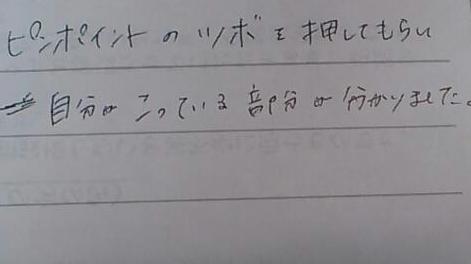 ピンポイントのツボを押してもらい
自分がこっている部分が分かりました。